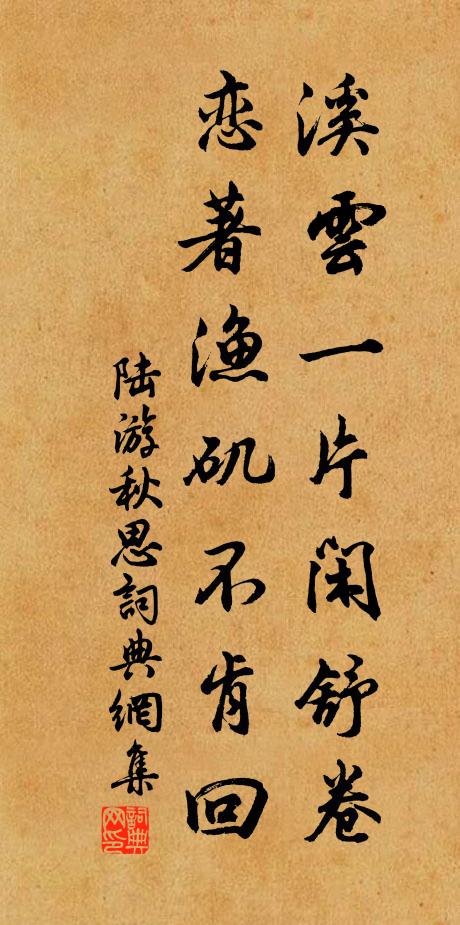 溪雲一片闲舒卷
恋著渔矶不肯回
陆游秋思詞典網集
詞典网印